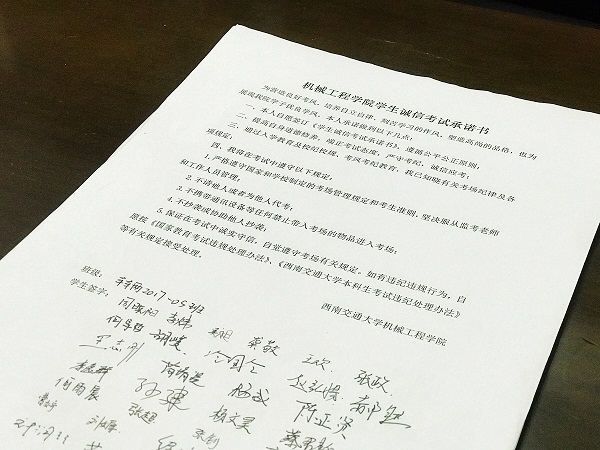 机械工程学院学生诚信考试承诺书
为营造良好考风，培养自立自律、刻苦学习的作风，塑造高尚的品格，也为
提高我院学子优良学风，本人承诺做到以下几点：
一、本人自愿签订《学生诚信考试承诺书》，遵循公平公正原则；
二、提高自身道德修养，端正考试态度，严守考纪，诚信应考；
三、通过入学教育及校纪校规、考风考纪教育，我已知晓有关考场纪律及各
项规定；
四、我将在考试中遵守以下规定：
1.严格遵守国家和学校制定的考场管理规定和考生准则，坚决服从监考老师
和工作人员管理；
2.不请他人或者为他人代考；
3.不携带通讯设备等任何禁止带入考场的物品进入考场；
4.不抄袭或协助他人抄袭；
5.保证在考试中诚实守信，自觉遵守考场有关规定。如有违纪违规行为，自
愿按《国家教育考试违规处理办法》、《西南交通大学本科生考试违纪处理办法》
等有关规定接受处理。
西南交通大学机械工程学院
班级：车辆2017-05班
学生签字：
蔡敬 王欢 张政
杨成
杨文昊 陈正贤
张超